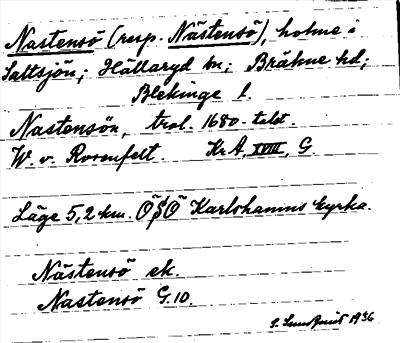 Nastensö (resp. Nästensö), holme i
Saltsjön; Hällaryd sn; Bräkne hd;
Blekinge l.
Nastensön, trol. 1680-talet.
W. v. Rosenfelt. Kr A, XVIII, G.
Läge 5,2 km. ÖSÖ Karlshamns kyrka.
Nästensö ek.
Nastensö G.10.
S. Sundquist 1936